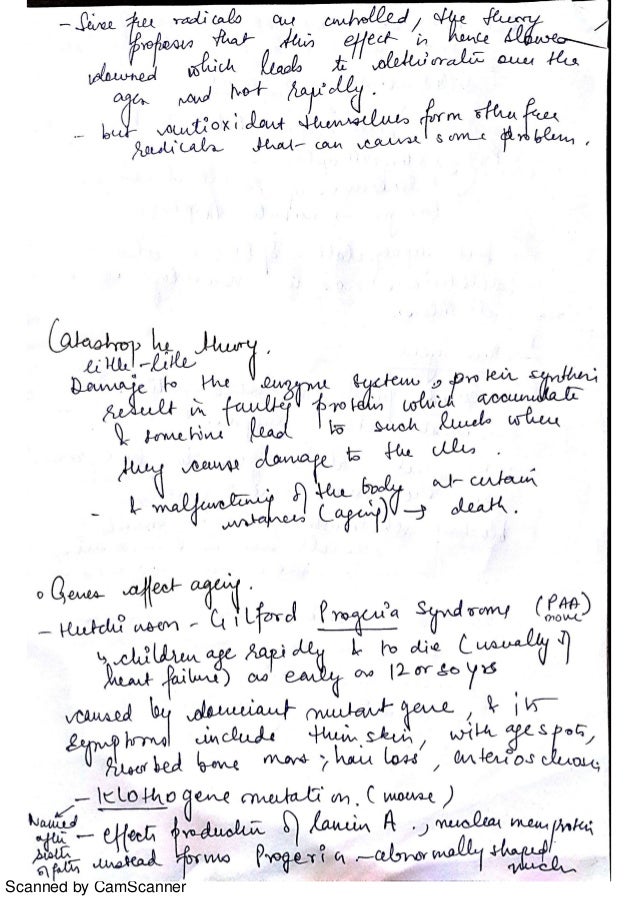 - Since free radicals are controlled, the theory
proposes that this effect is hence slower
downed which leads to deterioration over the
ages and not rapidly.
- but antioxidant themselves form other free
radicals that can cause some problem.
Catastrophe theory.
little-little
Damage to the enzyme system, protein synthesis
result in faulty proteins which accumulate
& sometime lead to such levels where
they cause damage to the cells.
- & malfunctioning of the body at certain
instances (ageing) → death.
o Genes affect ageing.
- Hutchinson - Gilford Progeria Syndrome (PAA)
movie
↳ children age rapidly & to die (usually of
heart failure) as early as 12 or so yrs
caused by dominant mutant gene, & its
symptoms include thin skin, with age spots,
resorbed bone mass, hair loss, arteriosclerosis
- Klotho gene mutation. (mouse)
Named
after
sister
of fates
- effects production of lamin A., nuclear mem protein
instead forms Progeria - abnormally shaped
Scanned by CamScanner